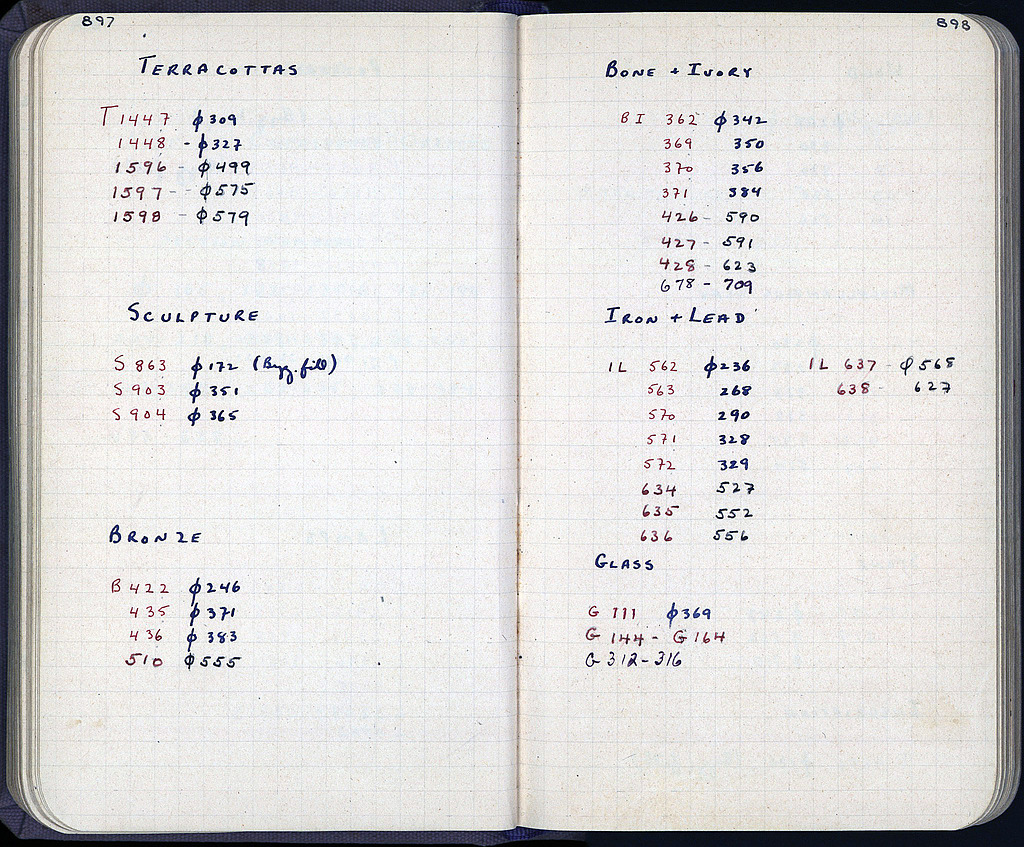 897
TERRACOTTAS
T 1447 φ309
1448 - φ327
1596 - φ499
1597 - - φ575
1598 - φ579
SCULPTURE
S 863 φ172 (Byz. fill)
S 903 φ351
S 904 φ365
BRONZE
B 422 φ246
435 φ371
436 φ383
510 φ555
898
BONE + IVORY
BI 362 φ342
369 350
370 356
371 384
426 - 590
427 - 591
428 - 623
678 - 709
IRON + LEAD
IL 562 φ236 IL 637 - φ565
563 268 638 - 627
570 290
571 328
572 329
634 527
635 552
636 556
GLASS
G 111 φ369
G 144 - G 164
G 312-316